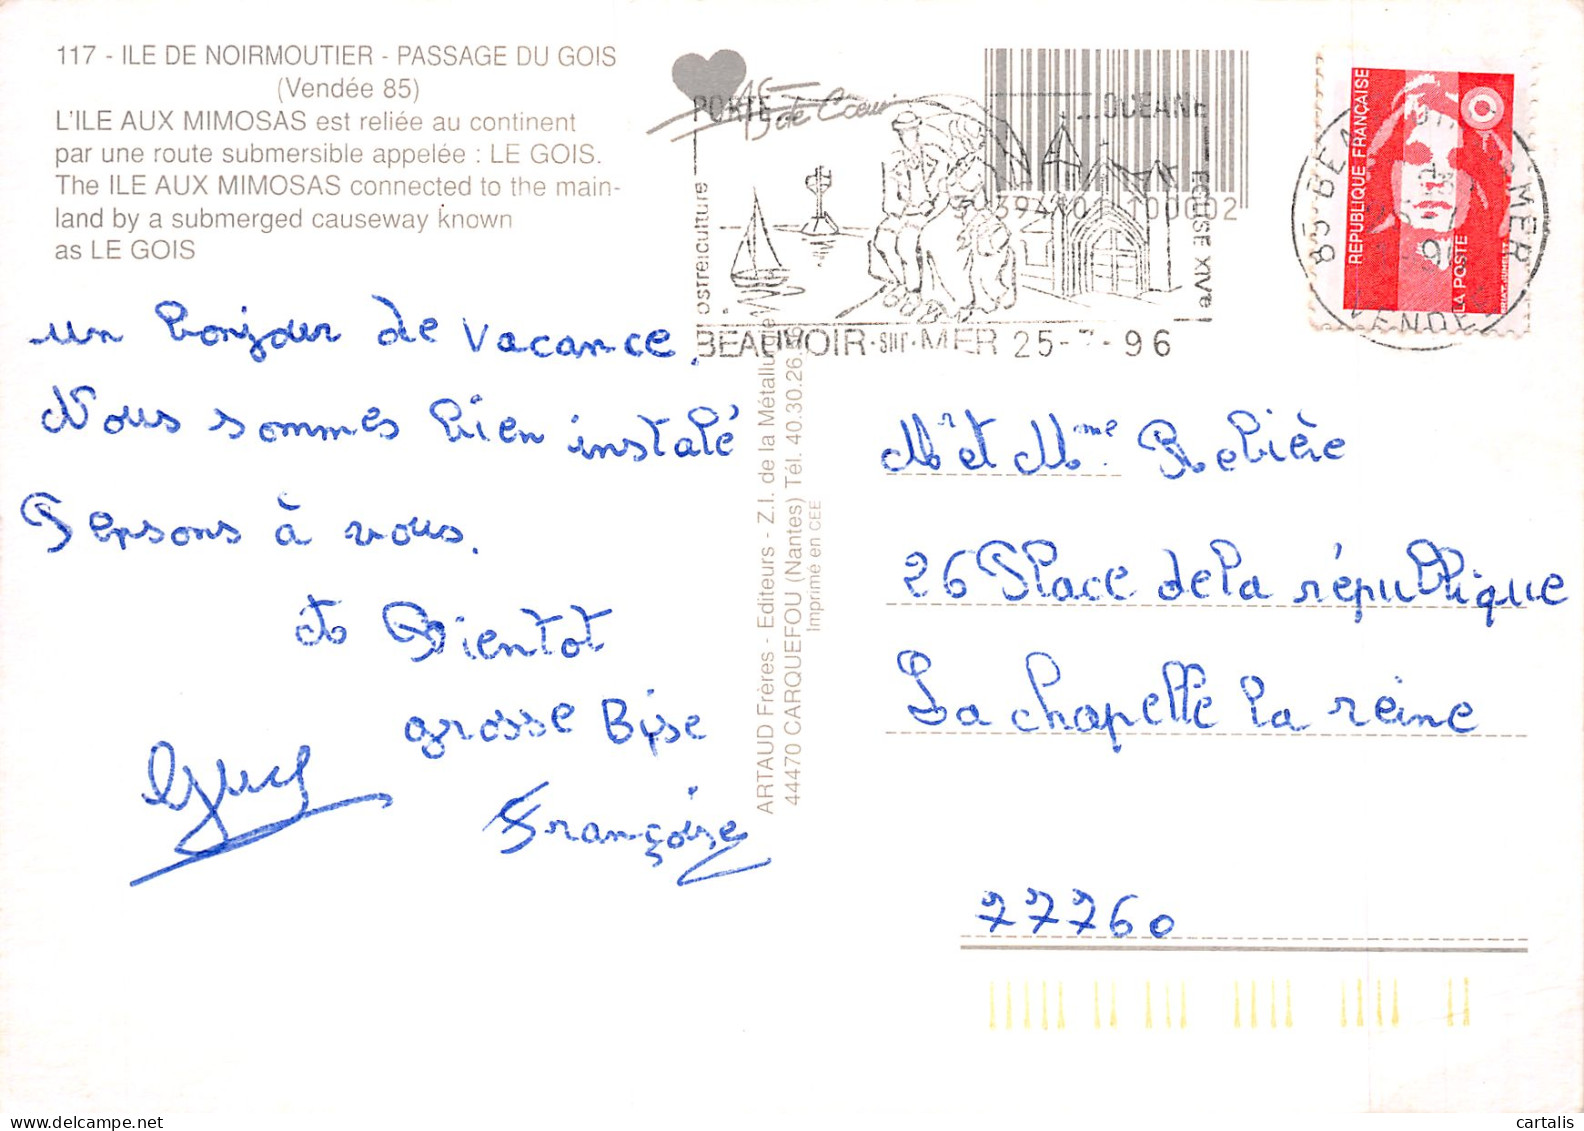 117 - ILE DE NOIRMOUTIER - PASSAGE DU GOIS
(Vendée 85)
L'ILE AUX MIMOSAS est reliée au continent
par une route submersible appelée : LE GOIS.
The ILE AUX MIMOSAS connected to the main-
land by a submerged causeway known
as LE GOIS
un bonjour de vacance.
Nous sommes bien instalé
Pensons à vous.
à Bientot
grosse Bise
Françoise
ARTAUD Frères - Editeurs - Z.I. de la Métallurgie
44470 CARQUEFOU (Nantes) Tél. 40.30.26
Imprimé en CEE
de Cœur
PORTE OCEANE
ostreiculture
EGLISE XIVe
BEAUVOIR-sur-MER 25-7-96
REPUBLIQUE FRANÇAISE
LA POSTE
85 BEAUVOIR S MER
VENDEE
Mr et Mme Rebière
26 Place de la république
La chapelle la reine
77760
cartalis